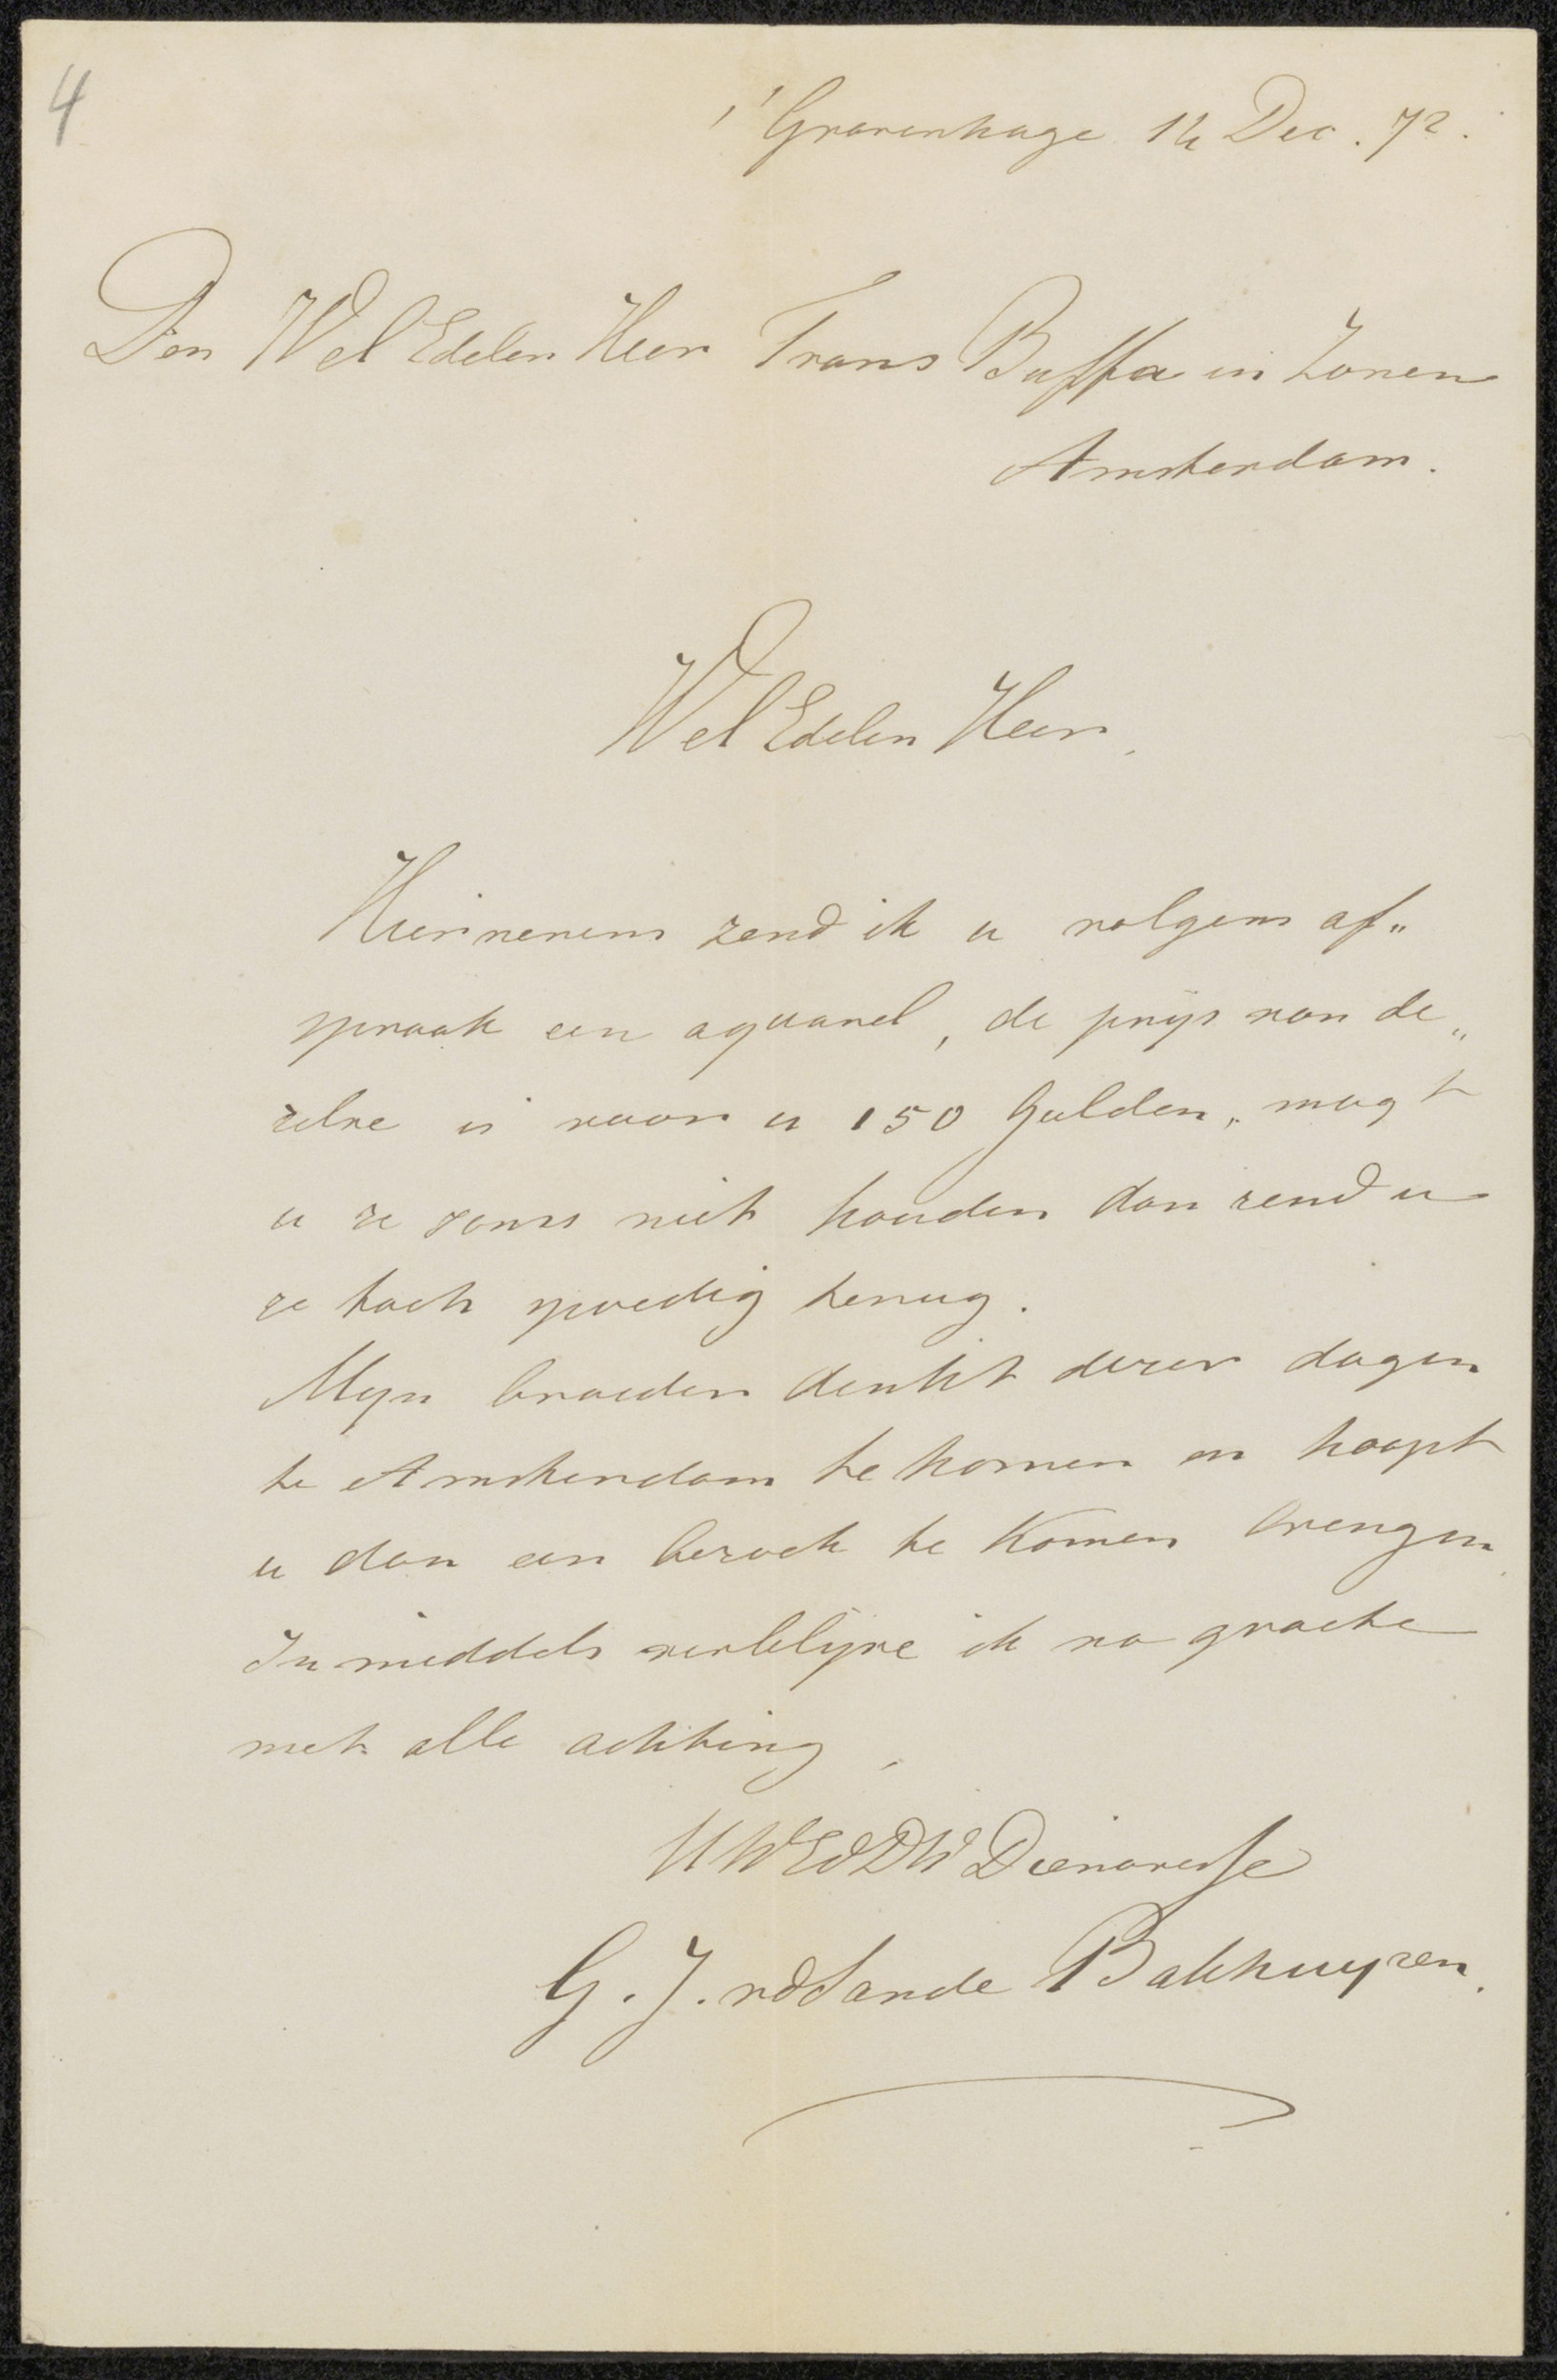 4
s' Gravenhage 14 Dec. 72.
Den Wel Edelen Heer Frans Buffa en Zonen
Amsterdam.
Wel Edelen Heer,
Hiernevens zend ik u volgens af„
spraak een aquarel, de prijs van de„
zelve is voor u 150 Gulden, mogt
u ze soms niet houden dan zend u
ze toch spoedig terug.
Mijn broeder denkt dezer dagen
te Amsterdam te komen en hoopt
u dan een bezoek te komen brengen.
Inmiddels verblijve ik na groete
met alle achting,
UWEdDW Dienaresse
G. J. vd Sande Bakhuyzen.